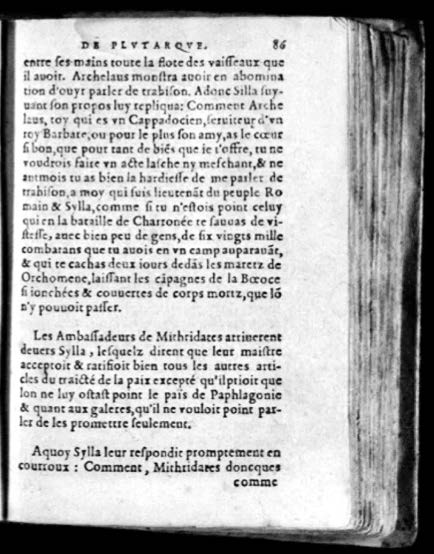 DE PLVTARQVE. 86
entre ses mains toute la flote des vaisseaux que
il auoir. Archelaus monstra auoir en abomina
tion d'ouyr parler de trahison. Adonc Silla suy-
uant son propos luy repliqua: Comment Arche
laus, toy qui es vn Cappadocien, seruiteur d'vn
roy Barbare, ou pour le plus son amy, as le cœur
si bon, que pour tant de biés que ie t'offre, tu ne
voudrois faire vn acte lasche ny meschant, & ne
antmois tu as bien la hardiesse de me parler de
trahison, a moy qui suis lieutenãt du peuple Ro
main & Sylla, comme si tu n'estois point celuy
qui en la bataille de Charronée te sauuas de vi-
stesse, auec bien peu de gens, de six vingts mille
combatans que tu auois en vn camp auparauãt,
& qui te cachas deux iours dedãs les maretz de
Orchomene, laissant les cãpagnes de la Bœoce
si ionchées & couuertes de corps mortz, que lõ
n'y pouuoit passer.
Les Ambassadeurs de Mithridates arriuerent
deuers Sylla, lesquelz dirent que leur maistre
acceptoit & ratifioit bien tous les autres arti-
cles du traicté de la paix excepté qu'il prioit que
lon ne luy ostast point le païs de Paphlagonie
& quant aux galeres, qu'il ne vouloit point par-
ler de les promettre seulement.
Aquoy Sylla leur respondit promptement en
courroux : Comment, Mithridates doncques
comme